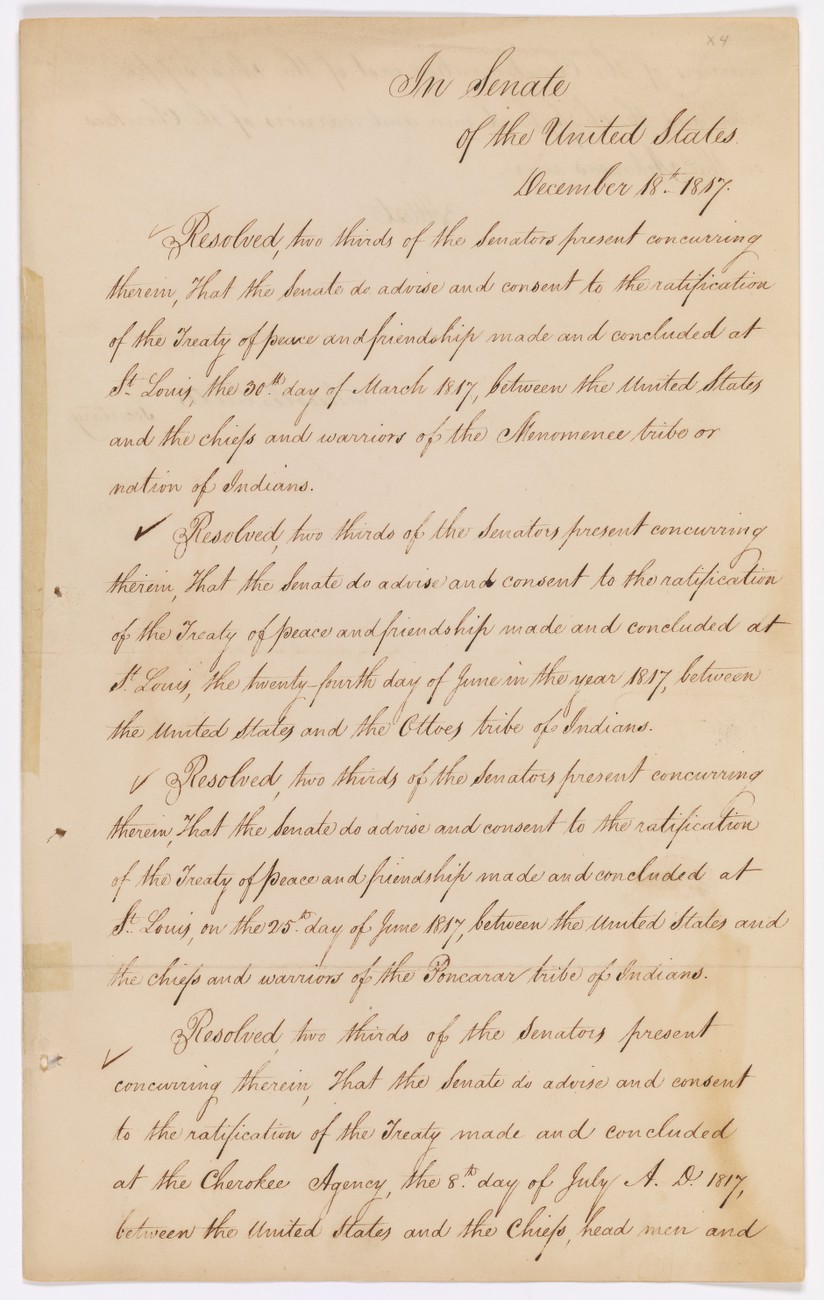 x 4
In Senate
of the United States
December 18th 1817.
Resolved, two thirds of the Senators present concurring
therein, That the Senate do advise and consent to the ratification
of the Treaty of peace and friendship made and concluded at
St. Louis, the 30th day of March 1817, between the United States
and the chiefs and warriors of the Menomenee tribe or
nation of Indians.
Resolved, two thirds of the Senators present concurring
therein, That the Senate do advise and consent to the ratification
of the Treaty of peace and friendship made and concluded at
St. Louis, the twenty-fourth day of June in the year 1817, between
the United States and the Ottoes tribe of Indians.
Resolved, two thirds of the Senators present concurring
therein, That the Senate do advise and consent to the ratification
of the Treaty of peace and friendship made and concluded at
St. Louis, on the 25th day of June 1817, between the United States and
the chiefs and warriors of the Poncarar tribe of Indians.
Resolved, two thirds of the Senators present
concurring therein, That the Senate do advise and consent
to the ratification of the Treaty made and concluded
at the Cherokee Agency, the 8th day of July A. D. 1817,
between the United States and the Chiefs, head men and